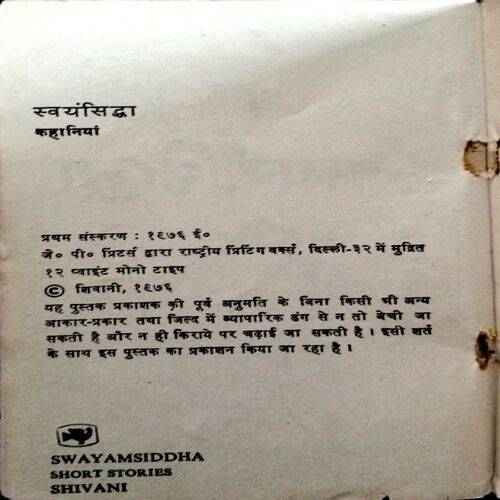 स्वयंसिद्धा
कहानियां
प्रथम संस्करण : १९७६ ई०
जे० पी० प्रिंटर्स द्वारा राष्ट्रीय प्रिंटिग वर्क्स, दिल्ली-३२ में मुद्रित
१२ प्वाइंट मोनो टाइप
© शिवानी, १९७६
यह पुस्तक प्रकाशक की पूर्व अनुमति के बिना किसी भी अन्य
आकार-प्रकार तथा जिल्द में व्यापारिक ढंग से न तो बेची जा
सकती है और न ही किराये पर चढ़ाई जा सकती है। इसी शर्त
के साथ इस पुस्तक का प्रकाशन किया जा रहा है।
SWAYAMSIDDHA
SHORT STORIES
SHIVANI